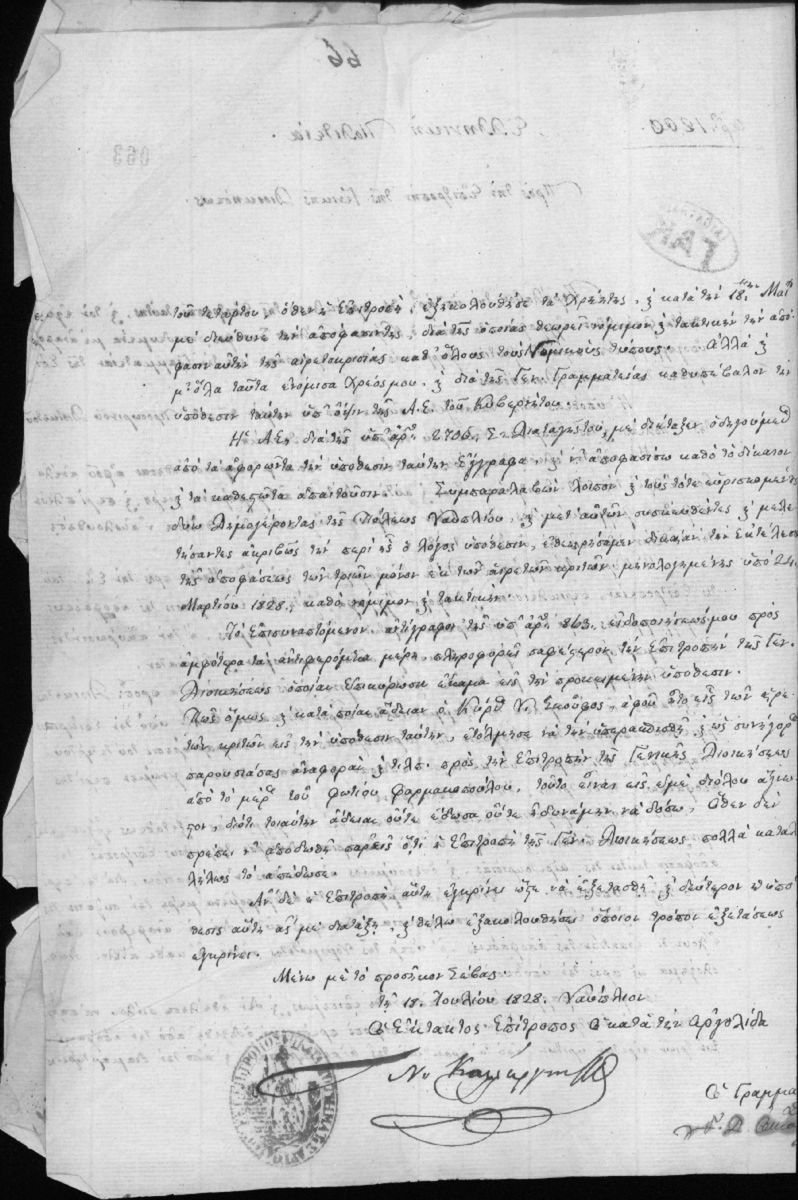 τοῦ τετάρτου, ὅθεν ἡ Ἐπιτροπὴ, ἐξηκολούθησε τὰ χρέητης, ὃ κατὰ τὴν 18: Μαΐ
μὲ διεύθυνε τὴν ἀπόφασίντης, διὰ τῆς ὁποίας θεωρεῖ νόμιμον ὃ τακτικὴν τὴν ἀπό
φασιν αὐτὴν τῆς αἱρετοκρισίας καθ' ὅλους τοὺς Νομικοὺς τύπους. Ἀλλὰ ὃ
μ' ὅλα ταῦτα ἐνόμισα χρέος μου, ὃ διὰ τῆς Γεν. Γραμματείας καθυπέβαλον τὴν
ὑπόθεσιν ταύτην ὑπ' ὄψιν τῆς Α.Ε. τοῦ Κυβερνήτου.
Ἡ Α.Ε. διὰ τῆς ὑπ' ἀρ. 2706, Διαταγῆς του, μὲ διέταξεν ὁδηγούμενος
ἀπὸ τὰ ἀφορῶντα τὴν ὑπόθεσιν ταύτην ἔγγραφα, ν' ἀποφασίσω καθὸ τὸ δίκαιον
ὃ τὰ καθεστῶτα ἀπαιτοῦσιν. Συμπαραλαβὼν λοιπὸν ὃ τοὺς τότε εὑρισκομένους
δύω Δημογέροντας τῆς Πόλεως Ναυπλίου, ὃ μετ' αὐτῶν συσκεφθέντες ὃ μελε
τήσαντες ἀκριβῶς τὴν περὶ ἧς ὁ λόγος ὑπόθεσιν, ἐθεωρήσαμεν δικαίαν τὴν ἐκτέλεσιν
τῆς ἀποφάσεως τῶν τριῶν μόνον ἐκ τῶν αἱρετῶν κριτῶν μενολογημένης ὑπὸ 24:
Μαρτίου 1828, καθὸ νόμιμον ὃ τακτικήν.
Τὸ ἐπισυναπτόμενον ἀντίγραφον τῆς ὑπ' ἀρ. 863. εἰδοποιήσεώς μου πρὸς
ἀμφότερα τὰ ἀντιφερόμενα μέρη, πληροφορεῖ σαφέστερον τὴν Ἐπιτροπὴν τῆς Γεν.
Διοικήσεως ὁποίαν ἐπικύρωσιν ἔκαμα εἰς τὴν προκειμένην ὑπόθεσιν.
Πῶς ὅμως ὃ κατὰ ποίαν ἄδειαν ὁ Κύριος Ν. Σκούφος, ἀφοῦ ἦτο εἷς τῶν αἱρε
τῶν κριτῶν εἰς τὴν ὑπόθεσιν ταύτην, ἐτόλμησε νὰ τὴν ὑπερασπισθῇ, ὃ ὡς συνήγορος
παρουσιάσας ἀναφορὰν ὃ τ.λπ. πρὸς τὴν Ἐπιτροπὴν τῆς Γενικῆς Διοικήσεως
ἀπὸ τὸ μέρος τοῦ Φωτίου Φαρμακοπούλου, τοῦτο εἶναι εἰς ἐμὲ διόλου ἄγνω
στον, διότι τοιαύτην ἄδειαν οὔτε ἔδωσα οὔτε ἠδυνάμην νὰ δώσω, ὅθεν δὲν
πρέπει ν' ἀποδωθῇ παρ' εἰς ὅ,τι ἡ Ἐπιτροπὴ τῆς Γεν. Διοικήσεως πολλὰ καταλ
λήλως τὸ ἀπέδωσε.
Ἂν δὲ ἡ Ἐπιτροπὴ αὕτη ἐγκρίνει ὥστε νὰ ἐξετασθῇ ὃ δεύτερον ἡ ὑπό
θεσις αὕτη ἂς μὲ διατάξῃ, ὃ θέλω ἐξακολουθήσει ὁποῖον τρόπον ἐξετάσεως
ἐγκρίνει.
Μένω μὲ τὸ προσῆκον Σέβας
τῇ 18. Ἰουλίου 1828. Ναύπλιον
Ὁ Ἔκτακτος Ἐπίτροπος ὁ κατὰ τὴν Ἀργολίδα
Ν. Καλλέργης
Ὁ Γραμμα